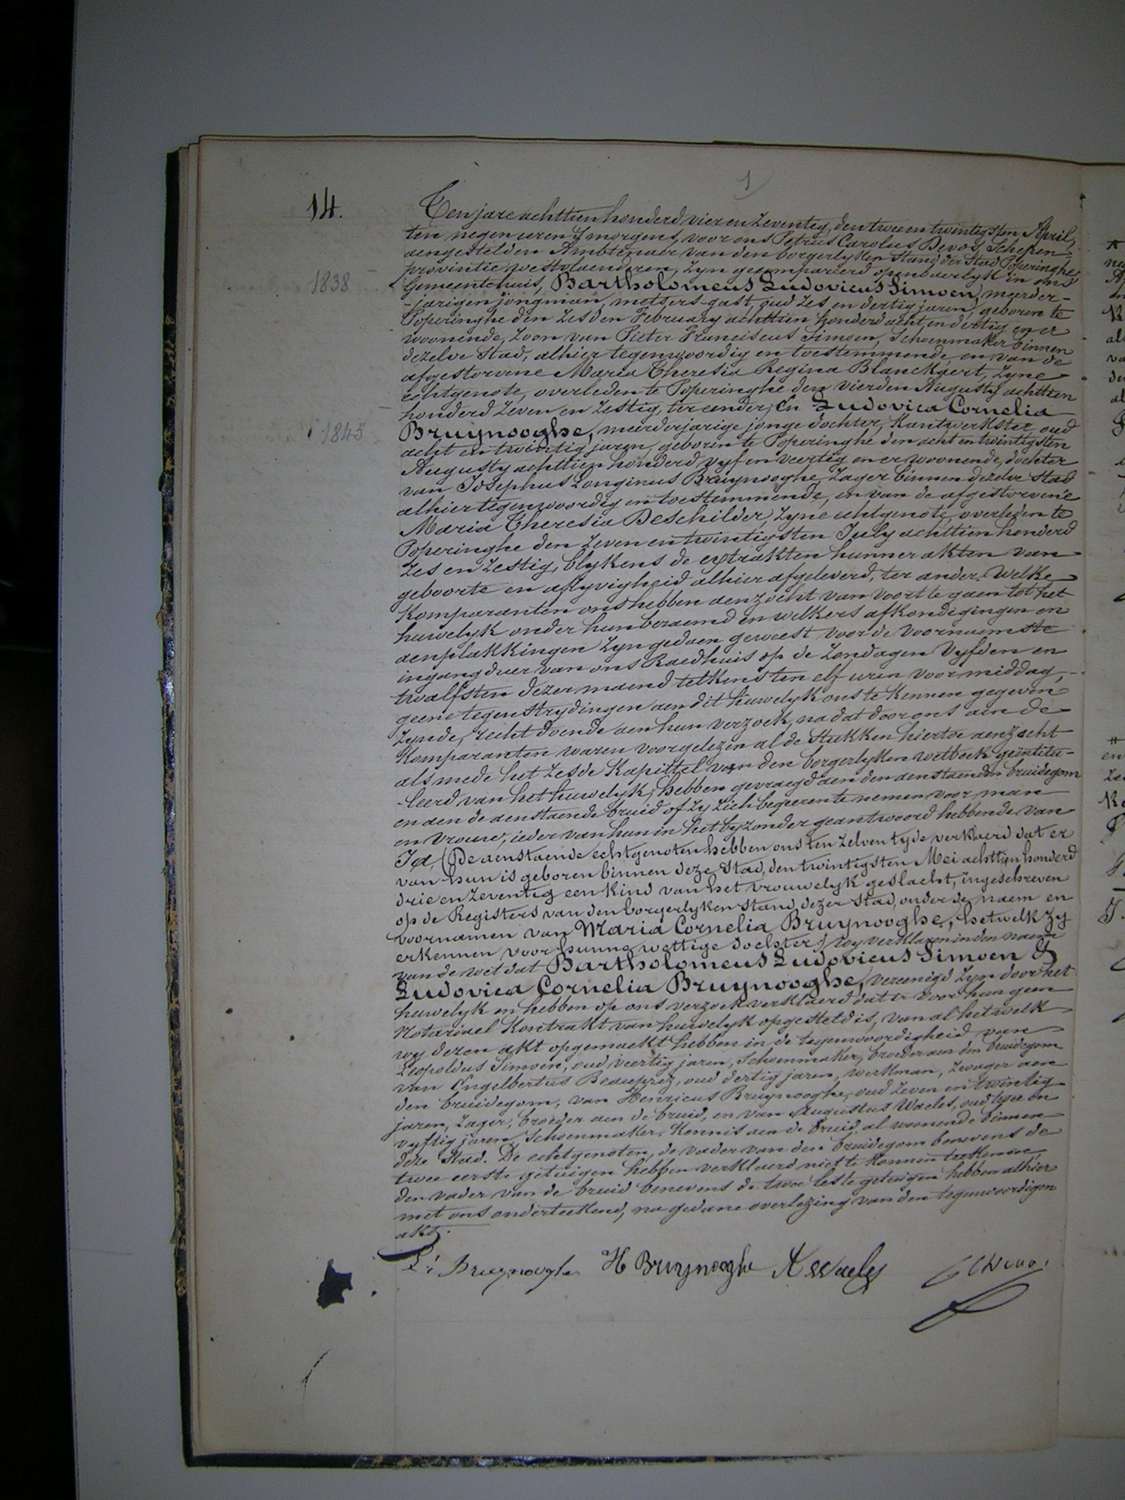 1
14.
Ten jare achttien honderd vier en zeventig, den twee en twintigsten April,
ten negen uren 's morgens, voor ons Petrus Carolus Devos, Schepen
aengestelden Ambtenaer van den borgerlyken Stand der Stad Poperinghe,
provintie Westvlaenderen, zyn gecompareerd openbaerlyk in ons
1838
Gemeentehuis, Bartholomeus Ludovicus Simoen, meerder-
-jarigen jongman, metsers-gast, oud zes en dertig jaren, geboren te
Poperinghe den zesden February achttien honderd acht en dertig en er
woonende, zoon van Pieter Franciscus Simoen, Schoenmaker binnen
dezelve Stad, alhier tegenwoordig en toestemmende, en van de
afgestorvene Maria Theresia Regina Blanckaert, zyne
echtgenote, overleden te Poperinghe den vierden Augusty achttien
honderd zeven en zestig, ter eender; En Ludovica Cornelia
1845
Bruynooghe, meerderjarige jonge dochter, Kantwerkster, oud
acht en twintig jaren, geboren te Poperinghe den acht en twintigsten
Augusty achttien honderd vyf en veertig en er woonende, dochter
van Josephus Longinus Bruynooghe, Zager binnen dezelve Stad
alhier tegenwoordig en toestemmende, en van de afgestorvene
Maria Theresia Deschilder, zyne echtgenote, overleden te
Poperinghe den zeven en twintigsten July achttien honderd
zes en zestig, blykens de extrakten hunner akten van
geboorte en aflyvigheid alhier afgeleverd, ter ander. Welke
Komparanten ons hebben aenzocht van voort te gaen tot het
huwelyk onder hun beraemd en welkers afkondigingen en
aenplakkingen zyn gedaen geweest voor de voornaemste
ingangdeur van ons Raedhuis op de Zondagen vyfden en
twalfsten dezer maend telkens ten elf uren voormiddag,
geene tegenstrydingen aen dit huwelyk ons te kennen gegeven
zynde, recht doende aen hun verzoek, na dat door ons aen de
Komparanten waren voorgelezen al de stukken hiertoe aenzocht
alsmede het zesde Kapittel van den borgerlyken wetboek geïntitu-
-leerd van het huwelyk, hebben gevraegd aen den aenstaenden bruidegom
en aen de aenstaende bruid of zy zich begeeren te nemen voor man
en vrouw, ieder van hun in het byzonder geantwoord hebbende van
Ja, (De aenstaende echtgenoten hebben ons ten zelven tyde verklaerd dat er
van hun is geboren binnen deze Stad, den twintigsten Mei achttien honderd
drie en zeventig een kind van het vrouwelyk geslacht, ingeschreven
op de Registers van den borgerlyken Stand dezer Stad onder de naem en
voornamen van Maria Cornelia Bruynooghe, hetwelk zy
erkennen voor hunne wettige dochter) wy verklaren in den naem
van de wet dat Bartholomeus Ludovicus Simoen &
Ludovica Cornelia Bruynooghe, vereenigd zyn door het
huwelyk en hebben op ons verzoek verklaerd dat er voor hun geen
Notariael Kontrakt van huwelyk opgesteld is, van al hetwelk
wy dezen akt opgemaekt hebben in de tegenwoordigheid van
Leopoldus Simoen, oud veertig jaren, Schoenmaker, broeder aen den bruidegom
van Engelbertus Beauprez, oud dertig jaren, werkman, zwager aen
den bruidegom, van Henricus Bruynooghe, oud zeven en twintig
jaren, Zager, broeder aen de bruid, en van Augustus Waeles, oud twee en
vyftig jaren, Schoenmaker, Kennis aen de bruid, al woonende binnen
deze Stad. De echtgenoten, de vader van den bruidegom benevens de
twee eerste getuigen hebben verklaerd niet te konnen teekenen,
den vader van de bruid benevens de twee leste getuigen hebben alhier
met ons onderteekend, na gedane overlezing van den tegenwoordigen
akt.
Bruynooghe H Bruynooghe A Waeles